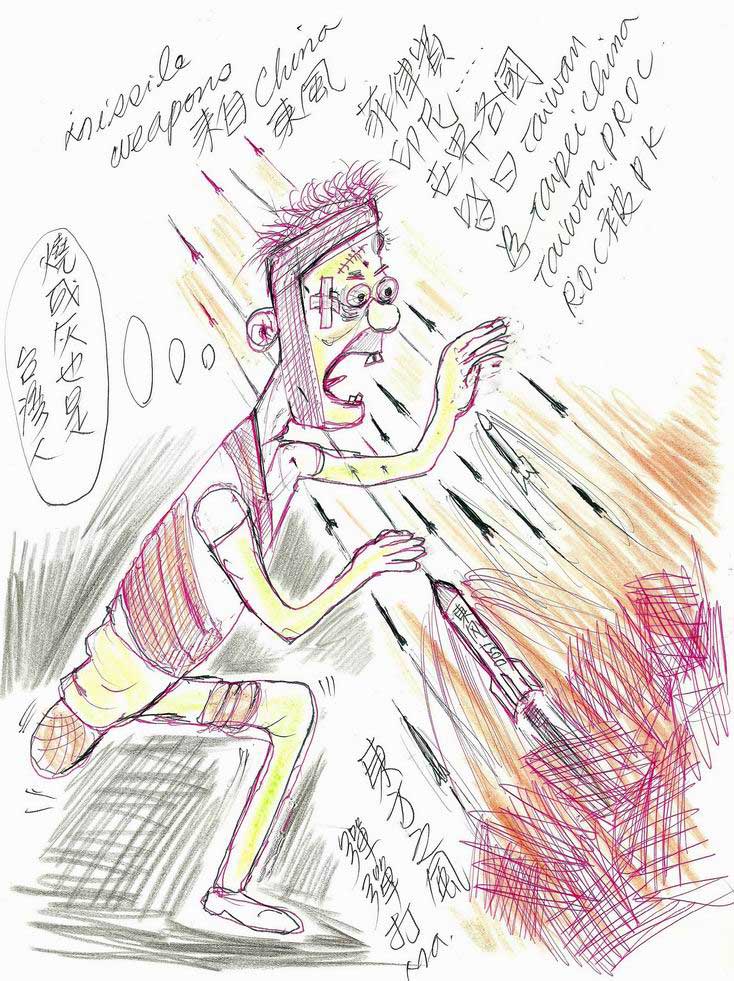 missile
weapons 來自 China
東風
菲律賓
印尼.....
世界各國
日 taiwan
taipei china
taiwan.P.R.O.C.
R.O.C 被 PK
燒成灰也是
台灣人
東风 1500
東方之風
彈彈打
ma.